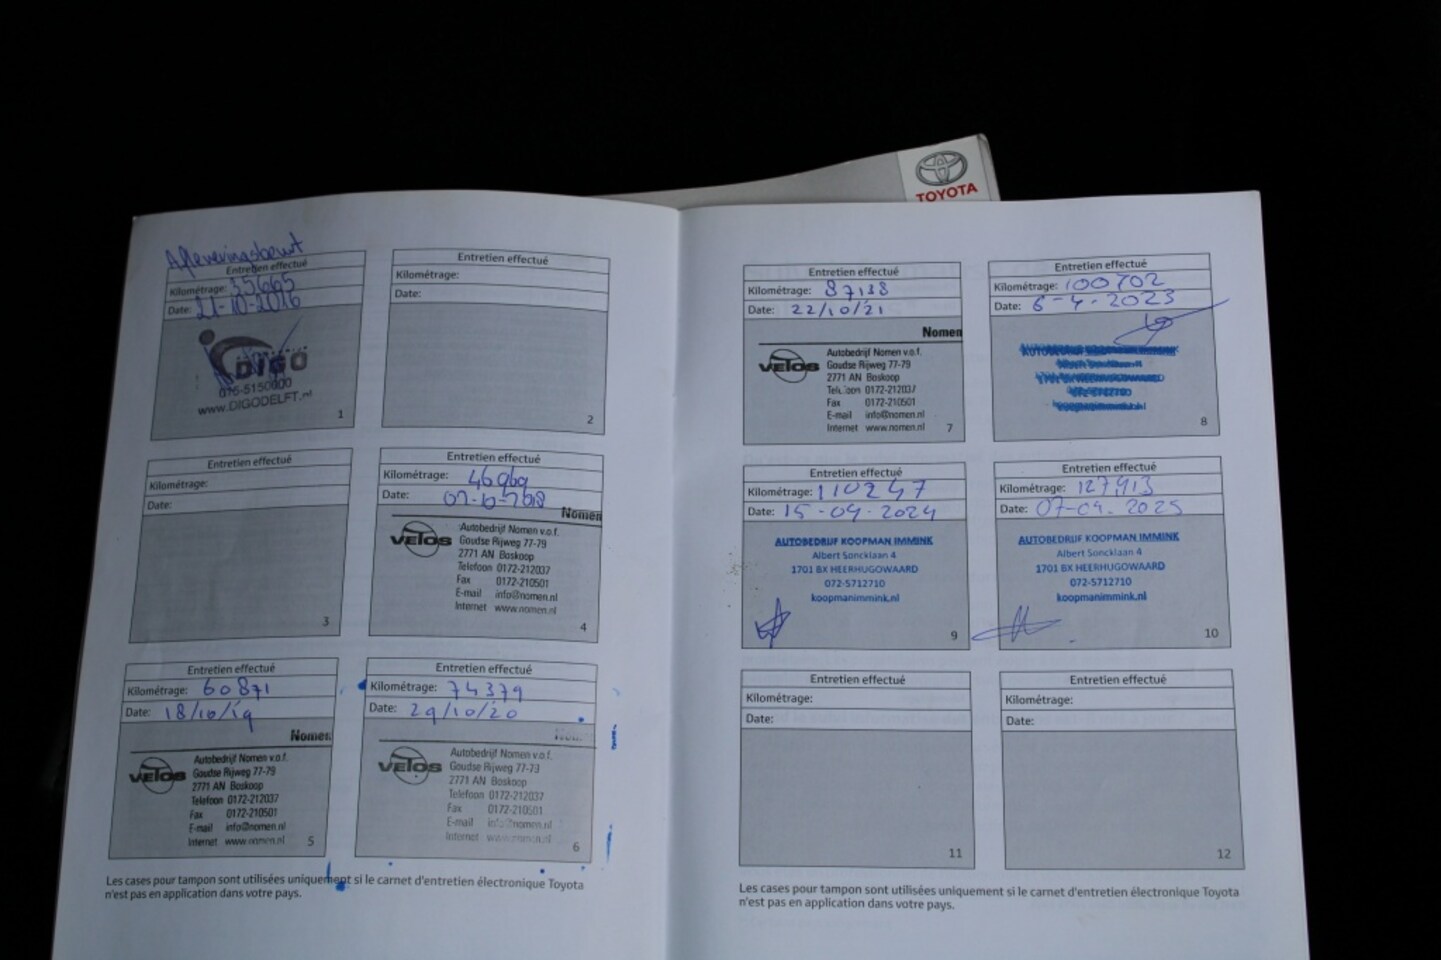 TOYOTA
Afleveringsbeurt
Entretien effectué
Kilométrage: 35665
Date: 21-10-2016
DIGO
015-5150000
www.DIGODELFT.nl
1
Entretien effectué
Kilométrage:
Date:
2
Entretien effectué
Kilométrage:
Date:
3
Entretien effectué
Kilométrage: 46969
Date:
Nomen
VETOS
Autobedrijf Nomen v.o.f.
Goudse Rijweg 77-79
2771 AN Boskoop
Telefoon 0172-212037
Fax 0172-210501
E-mail info@nomen.nl
Internet www.nomen.nl
4
Entretien effectué
Kilométrage: 60871
Date: 18/10/19
Nomen
VETOS
Autobedrijf Nomen v.o.f.
Goudse Rijweg 77-79
2771 AN Boskoop
Telefoon 0172-212037
Fax 0172-210501
E-mail info@nomen.nl
Internet www.nomen.nl
5
Entretien effectué
Kilométrage: 74379
Date: 29/10/20
Nomen
VETOS
Autobedrijf Nomen v.o.f.
Goudse Rijweg 77-79
2771 AN Boskoop
Telefoon 0172-212037
Fax 0172-210501
E-mail info@nomen.nl
Internet www.nomen.nl
6
Les cases pour tampon sont utilisées uniquement si le carnet d'entretien électronique Toyota
n'est pas en application dans votre pays.
Entretien effectué
Kilométrage: 87138
Date: 22/10/21
Nomen
VETOS
Autobedrijf Nomen v.o.f.
Goudse Rijweg 77-79
2771 AN Boskoop
Telefoon 0172-212037
Fax 0172-210501
E-mail info@nomen.nl
Internet www.nomen.nl
7
Entretien effectué
Kilométrage: 100702
Date: 6-4-2023
AUTOBEDRIJF KOOPMAN IMMINK
Albert Soncklaan 4
1701 BX HEERHUGOWAARD
072-5712710
koopmanimmink.nl
8
Entretien effectué
Kilométrage: 110247
Date: 15-04-2024
AUTOBEDRIJF KOOPMAN IMMINK
Albert Soncklaan 4
1701 BX HEERHUGOWAARD
072-5712710
koopmanimmink.nl
9
Entretien effectué
Kilométrage: 127,913
Date: 07-04-2025
AUTOBEDRIJF KOOPMAN IMMINK
Albert Soncklaan 4
1701 BX HEERHUGOWAARD
072-5712710
koopmanimmink.nl
10
Entretien effectué
Kilométrage:
Date:
11
Entretien effectué
Kilométrage:
Date:
12
Les cases pour tampon sont utilisées uniquement si le carnet d'entretien électronique Toyota
n'est pas en application dans votre pays.